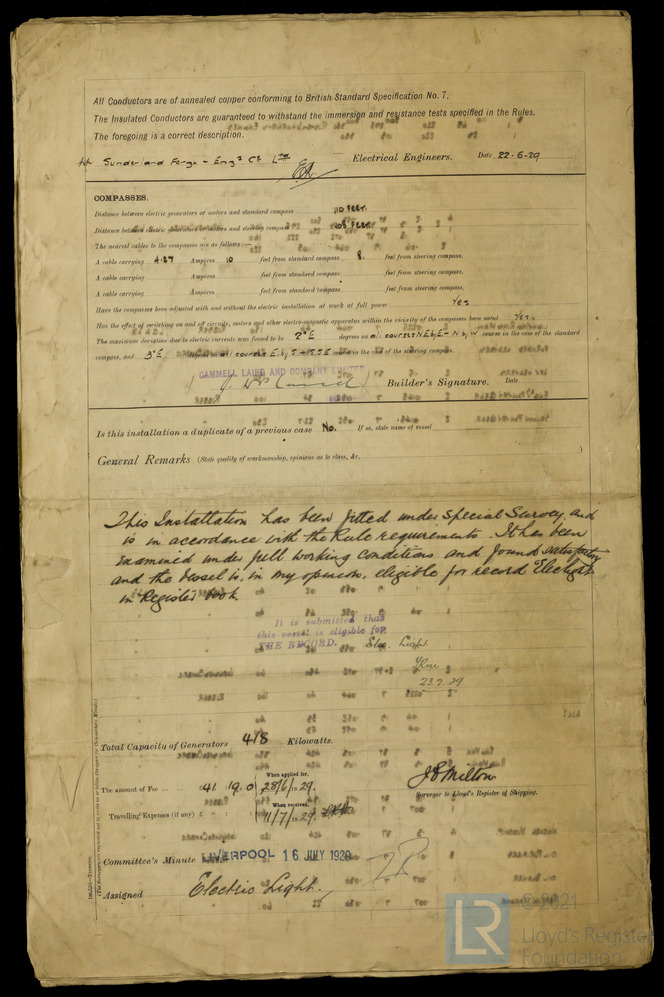 All Conductors are of annealed copper conforming to British Standard Specification No. 7.
The Insulated Conductors are guaranteed to withstand the immersion and resistance tests specified in the Rules.
The foregoing is a correct description.
Sunderland Forge & Engg Co Ltd Electrical Engineers. Date 22-6-29
COMPASSES.
Distance between electric generators or motors and standard compass 110 FEET.
Distance between electric generators or motors and steering compass 108 FEET.
The nearest cables to the compasses are as follows:—
A cable carrying 4.27 Amperes 10 feet from standard compass 8. feet from steering compass.
A cable carrying Amperes feet from standard compass feet from steering compass.
A cable carrying Amperes feet from standard compass feet from steering compass.
Have the compasses been adjusted with and without the electric installation at work at full power Yes
Has the effect of switching on and off circuits, motors and other electro-magnetic apparatus within the vicinity of the compasses been noted Yes.
The maximum deviation due to electric currents was found to be 2° E degrees on all courses N E by E - N by W course in the case of the standard
compass, and 3° E degrees on all courses E. by S course in the case of the steering compass.
CAMMELL LAIRD AND COMPANY LIMITED
Builder's Signature. Date
Is this installation a duplicate of a previous case No. If so, state name of vessel
General Remarks (State quality of workmanship, opinions as to class, &c.
This Installation has been fitted under Special Survey, and
is in accordance with the Rule requirements. It has been
examined under full working conditions and found satisfactory
and the vessel is, in my opinion, eligible for record Elec. light
in Register book
It is submitted that
this vessel is eligible for
THE RECORD. Elec. Light
23.7.29
Total Capacity of Generators 418 Kilowatts.
The amount of Fee ... £41 19. 0 When applied for, 28/6/1929.
J B Milton
Surveyor to Lloyd's Register of Shipping.
Travelling Expenses (if any) £ : : When received, 11/7/1929
Committee's Minute LIVERPOOL 16 JULY 1929
Assigned Electric Light.
LR
© 2021
Lloyd's Register
Foundation